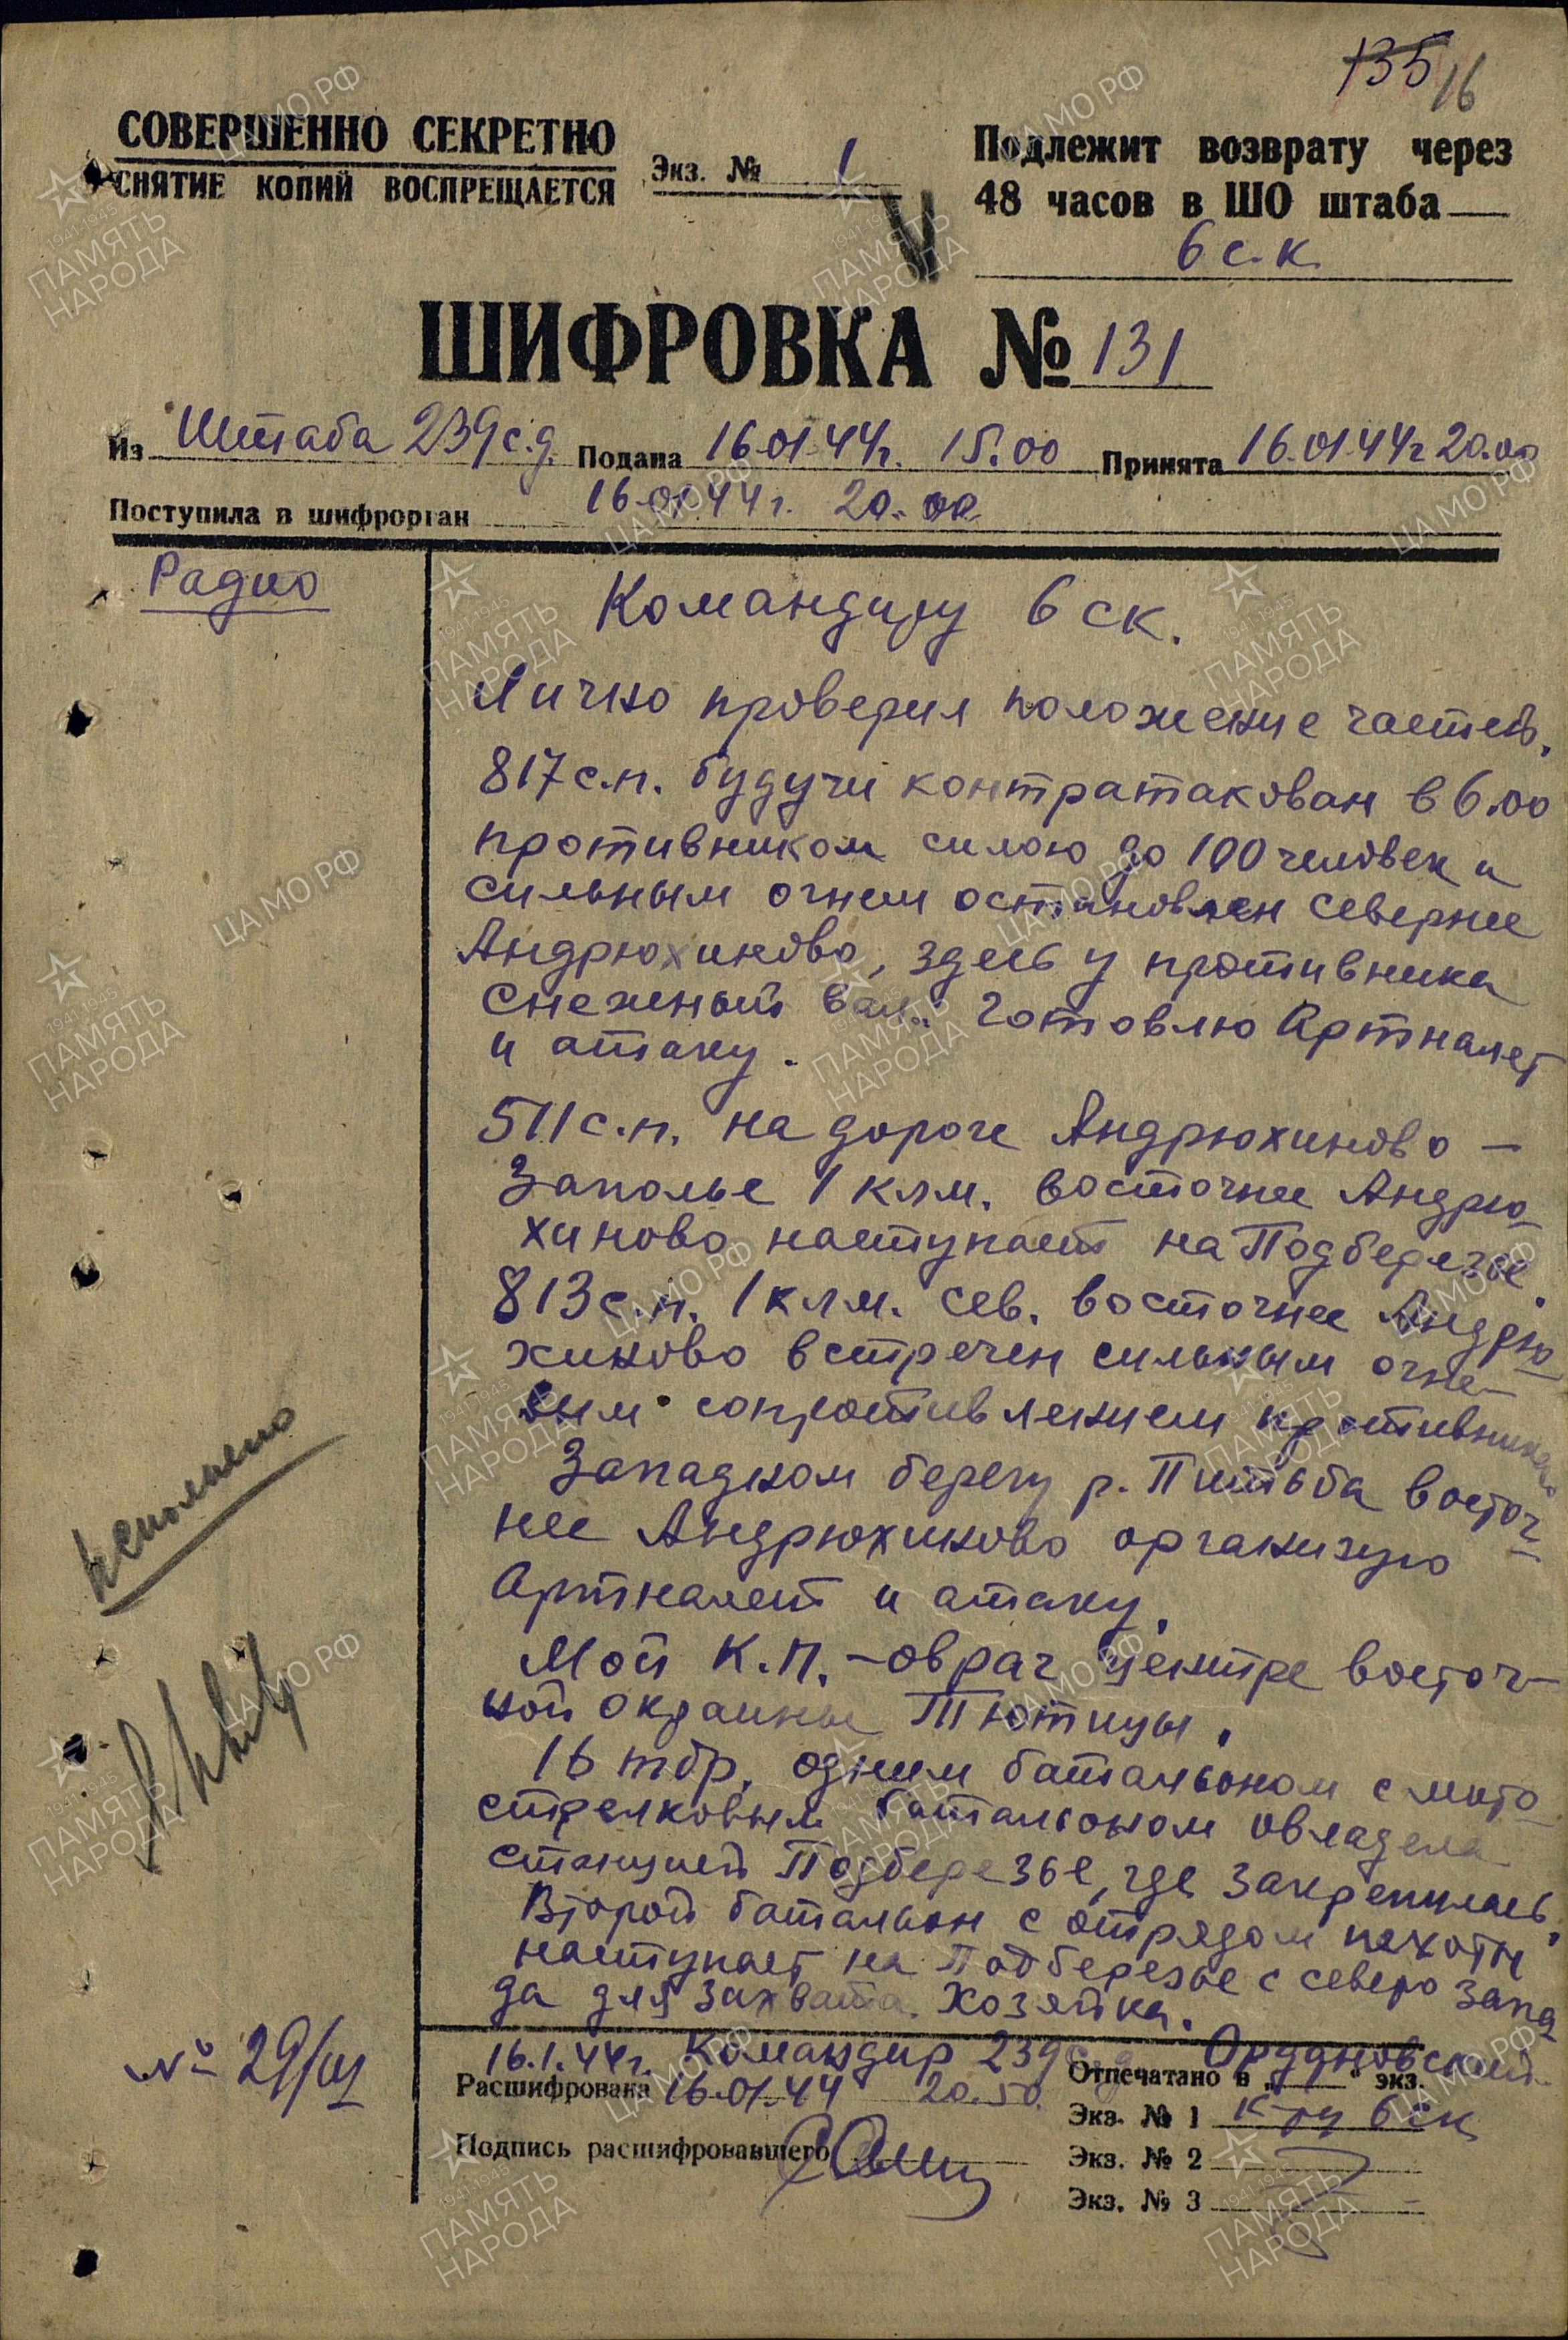 135 16
СОВЕРШЕННО СЕКРЕТНО
СНЯТИЕ КОПИЙ ВОСПРЕЩАЕТСЯ
Экз. № 1
Подлежит возврату через
48 часов в ШО штаба
6 с.к.
ШИФРОВКА № 131
Из Штаба 239 с.д. Подана 16.01.44г. 15.00 Принята 16.01.44г 20.00
Поступила в шифрорган 16.01.44г. 20.00
Радио
Командиру 6 ск.
Лично проверил положение частей.
817 с.п. будучи контратакован в 6.00
противником силою до 100 человек и
сильным огнем остановлен севернее
Андрюхиново, здесь у противника
снежный вал. Готовлю Артналет
и атаку.
511 с.п. на дороге Андрюхиново –
Заполье 1 клм. восточнее Андрю-
хиново наступает на Подберезье.
813 с.п. 1 клм. сев. восточнее Андрю-
хиново встречен сильным огне-
вым сопротивлением противника
Западном берегу р. Питьба восточ-
нее Андрюхиново организую
Артналет и атаку.
Мой К.П. – овраг центре восточ-
ной окраины Тютицы.
16 тбр. одним батальоном с мото
стрелковым батальоном овладела
станцией Подберезье, где закрепилась.
Второй батальон с отрядом пехоты
наступает на Подберезье с северо запа
да для захвата Хозяйка.
исполнено
№ 29/ш
16.1.44г. Командир 239 с.д. Ордановский
Расшифрована 16.01.44 20.50.
Подпись расшифровавшего
Отпечатано в „ “ экз.
Экз. № 1 К-ру 6 ск
Экз. № 2
Экз. № 3
ПАМЯТЬ НАРОДА
1941-1945
ЦАМО РФ